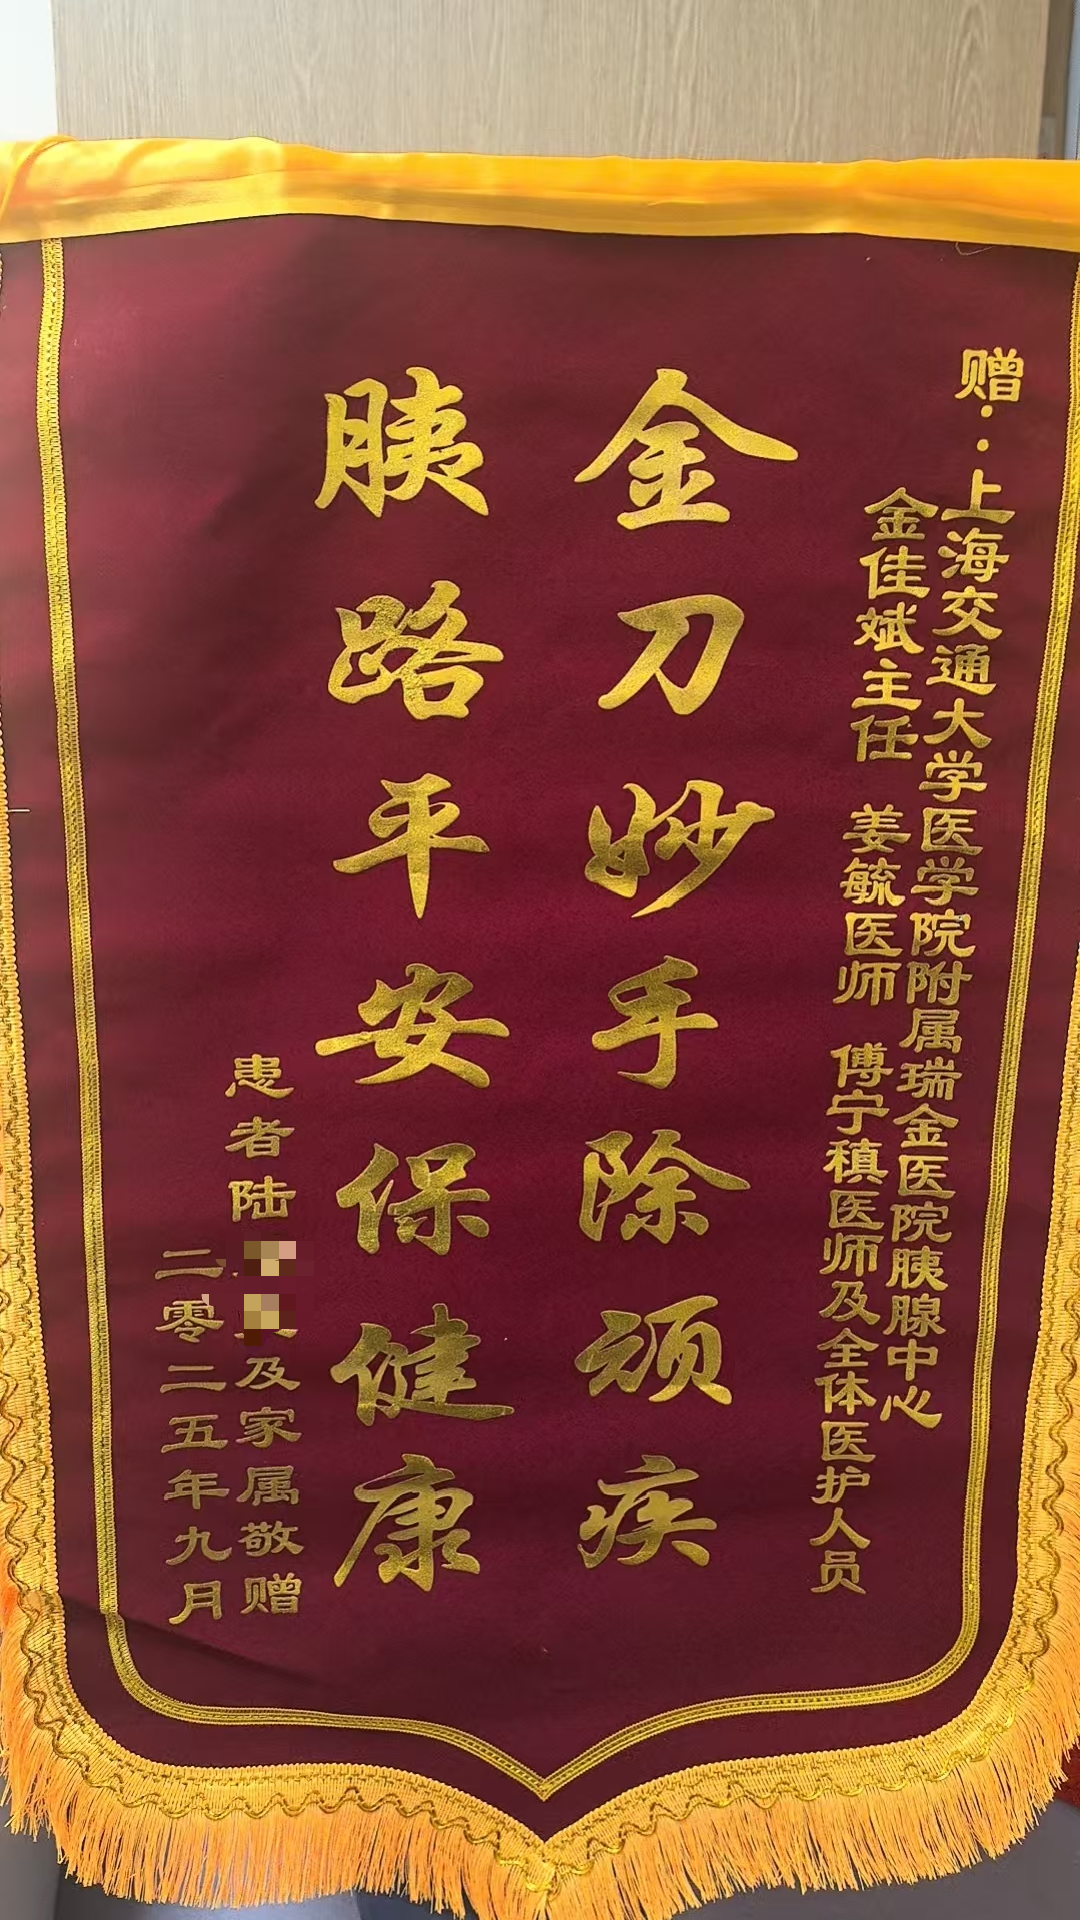 赠：上海交通大学医学院附属瑞金医院胰腺中心
金佳斌主任 姜毓医师 傅宁稹医师及全体医护人员
金刀妙手除顽疾
胰路平安保健康
患者陆
及家属敬赠
二零二五年九月